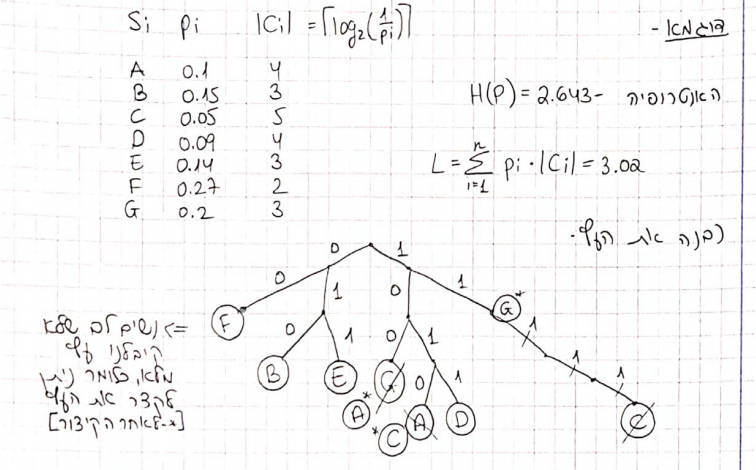 דוגמא -
Si pi |Ci| = ⌈log₂(1/pi)⌉
A 0.1 4
B 0.15 3
C 0.05 5
D 0.09 4
E 0.14 3
F 0.27 2
G 0.2 3
האנטרופיה - H(P) = 2.643
L = Σ_{i=1}^{n} pi · |Ci| = 3.02
נבנה את העץ -
0 1
0 1 0 1
F G*
0 1 0 1 1
B E G 0 1 1
A* C* A D 1
C
<= נשים לב שלא
קיבלנו עץ
מלא, כלומר ניתן
לקצר את העץ
[*-לאחר הקיצור]